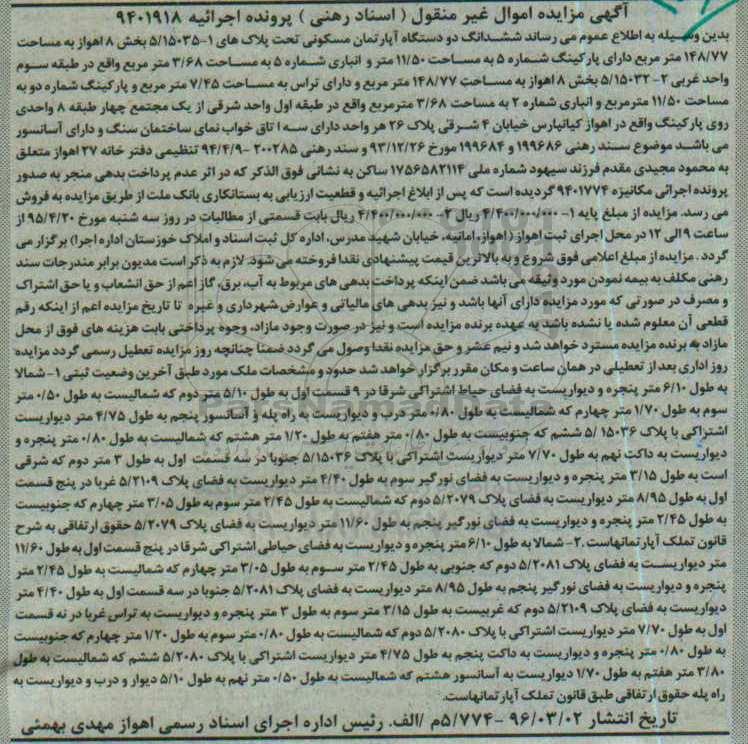 آگهی مزایده اموال غیر منقول ( اسناد رهنی ) پرونده اجرائیه ۹۴۰۱۹۱۸
بدین وسیله به اطلاع عموم می رساند ششدانگ دو دستگاه آپارتمان مسکونی تحت پلاک های ۱-۵/۱۵۰۳۵ بخش ۸ اهواز به مساحت
۱۴۸/۷۷ متر مربع دارای پارکینگ شماره ۵ به مساحت ۱۱/۵۰ متر و انباری شماره ۵ به مساحت ۳/۶۸ متر مربع واقع در طبقه سوم
واحد غربی ۲- ۵/۱۵۰۳۲ بخش ۸ اهواز به مساحت ۱۴۸/۷۷ متر مربع و دارای تراس به مساحت ۷/۴۵ متر مربع و پارکینگ شماره دو به
مساحت ۱۱/۵۰ مترمربع و انباری شماره ۲ به مساحت ۳/۶۸ مترمربع واقع در طبقه اول واحد شرقی از یک مجتمع چهار طبقه ۸ واحدی
روی پارکینگ واقع در اهواز کیانپارس خیابان ۴ شرقی پلاک ۲۶ هر واحد دارای سه اتاق خواب نمای ساختمان سنگ و دارای آسانسور
می باشد موضوع سند رهنی ۱۹۹۶۸۶ و ۱۹۹۶۸۴ مورخ ۹۳/۱۲/۲۶ و سند رهنی ۲۰۰۲۸۵ -۹۴/۴/۹ تنظیمی دفتر خانه ۲۷ اهواز متعلق
به محمود مجیدی مقدم فرزند سپهود شماره ملی ۱۷۵۶۵۸۲۱۱۴ ساکن به نشانی فوق الذکر که در اثر عدم پرداخت بدهی منجر به صدور
پرونده اجرائی مکانیزه ۹۴۰۱۷۷۴ گردیده است که پس از ابلاغ اجرائیه و قطعیت ارزیابی به بستانکاری بانک ملت از طریق مزایده به فروش
می رسد. مزایده از مبلغ پایه ۱- ۴/۴۰۰/۰۰۰/۰۰۰ ریال ۲- ۴/۴۰۰/۰۰۰/۰۰۰ ریال بابت قسمتی از مطالبات در روز سه شنبه مورخ ۹۵/۴/۲۰ از
ساعت ۹ الی ۱۲ در محل اجرای ثبت اهواز ( اهواز، امانیه، خیابان شهید مدرس، اداره کل ثبت اسناد و املاک خوزستان اداره اجرا) برگزار می
گردد . مزایده از مبلغ اعلامی فوق شروع و به بالاترین قیمت پیشنهادی نقدا فروخته می شود. لازم به ذکر است مدیون برابر مندرجات سند
رهنی مکلف به بیمه نمودن مورد وثیقه می باشد ضمن اینکه پرداخت بدهی های مربوط به آب، برق، گاز اعم از حق انشعاب و یا حق اشتراک
و مصرف در صورتی که مورد مزایده دارای آنها باشد و نیز بدهی های مالیاتی و عوارض شهرداری و غیره تا تاریخ مزایده اعم از اینکه رقم
قطعی آن معلوم شده یا نشده باشد به عهده برنده مزایده است و نیز در صورت وجود مازاد، وجوه پرداختی بابت هزینه های فوق از محل
مازاد به برنده مزایده مسترد خواهد شد و نیم عشر و حق مزایده نقدا وصول می گردد ضمنا چنانچه روز مزایده تعطیل رسمی گردد مزایده
روز اداری بعد از تعطیلی در همان ساعت و مکان مقرر برگزار خواهد شد حدود و مشخصات ملک مورد طبق آخرین وضعیت ثبتی ۱- شمالا
به طول ۶/۱۰ متر پنجره و دیواریست به فضای حیاط اشتراکی شرقا در ۹ قسمت اول به طول ۵/۱۰ متر دوم که شمالیست به طول ۰/۵۰ متر
سوم به طول ۱/۷۰ متر چهارم که شمالیست به طول ۰/۸۰ متر درب و دیواریست به راه پله و آسانسور پنجم به طول ۴/۷۵ متر دیواریست
اشتراکی با پلاک ۱۵۰۳۶ /۵ ششم که جنوبیست به طول ۰/۸۰ متر هفتم به طول ۱/۲۰ متر هشتم که شمالیست به طول ۰/۸۰ متر پنجره و
دیواریست به داکت نهم به طول ۷/۷۰ متر دیواریست اشتراکی با پلاک ۵/۱۵۰۳۶ جنوبا در سه قسمت اول به طول ۳ متر دوم که شرقی
است به طول ۳/۱۵ متر پنجره و دیواریست به فضای نورگیر سوم به طول ۴/۴۰ متر دیواریست به فضای پلاک ۵/۲۱۰۹ غربا در پنج قسمت
اول به طول ۸/۹۵ متر دیواریست به فضای پلاک ۵/۲۰۷۹ دوم که شمالیست به طول ۲/۴۵ متر سوم به طول ۳/۰۵ متر چهارم که جنوبیست
به طول ۲/۴۵ متر پنجره و دیواریست به فضای نورگیر پنجم به طول ۱۱/۶۰ متر دیواریست به فضای پلاک ۵/۲۰۷۹ حقوق ارتفاقی به شرح
قانون تملک آپارتمانهاست .۲- شمالا به طول ۶/۱۰ متر پنجره و دیواریست به فضای حیاطی اشتراکی شرقا در پنج قسمت اول به طول ۱۱/۶۰
متر دیواریست به فضای پلاک ۵/۲۰۸۱ دوم که جنوبی به طول ۲/۴۵ متر سوم به طول ۳/۰۵ متر چهارم که شمالیست به طول ۲/۴۵ متر
پنجره و دیواریست به فضای نورگیر پنجم به طول ۸/۹۵ متر دیواریست به فضای پلاک ۵/۲۰۸۱ جنوبا در سه قسمت اول به طول ۴/۴۰ متر
دیواریست به فضای پلاک ۵/۲۱۰۹ دوم که غربیست به طول ۳/۱۵ متر سوم به طول ۳ متر پنجره و دیواریست به تراس غربا در نه قسمت
اول به طول ۷/۷۰ متر دیواریست اشتراکی با پلاک ۵/۲۰۸۰ دوم که شمالیست به طول ۰/۸۰ متر سوم به طول ۱/۲۰ متر چهارم که جنوبیست
به طول ۰/۸۰ متر پنجره و دیواریست به داکت پنجم به طول ۴/۷۵ متر دیواریست اشتراکی با پلاک ۵/۲۰۸۰ ششم که شمالیست به طول
۳/۸۰ متر هفتم به طول ۱/۷۰ دیواریست به آسانسور هشتم که شمالیست به طول ۰/۵۰ متر نهم به طول ۵/۱۰ دیوار و درب و دیواریست به
راه پله حقوق ارتفاقی طبق قانون تملک آپارتمانهاست.
تاریخ انتشار ۹۶/۰۳/۰۲ -۵/۷۷۴م /الف. رئیس اداره اجرای اسناد رسمی اهواز مهدی بهمئی